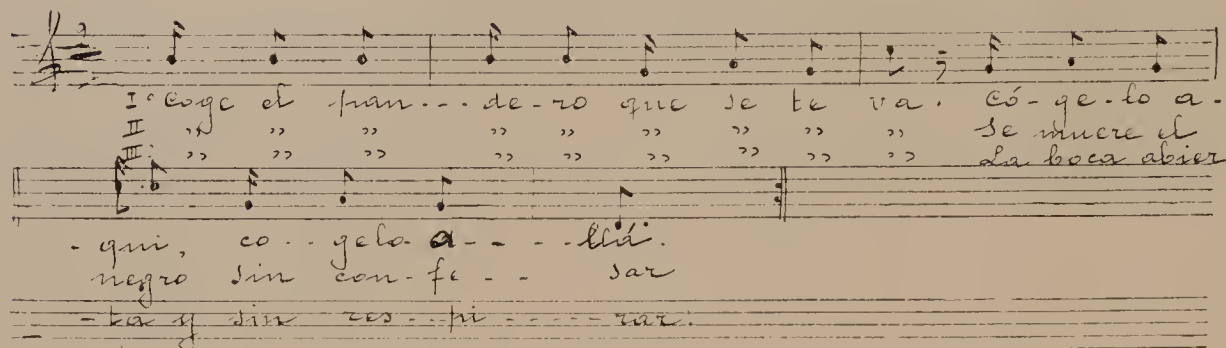 Iº Coge el pan--- de-ro que se te va. Có-ge-lo a-
II ,, ,, ,, ,, ,, ,, ,, ,, ,, Se muere el
III: ,, ,, ,, ,, ,, ,, ,, ,, ,, La boca abier
-qui, co--gelo a----llá.
negro sin con-fe--- sar
-ta y sin res--pi-----rar.